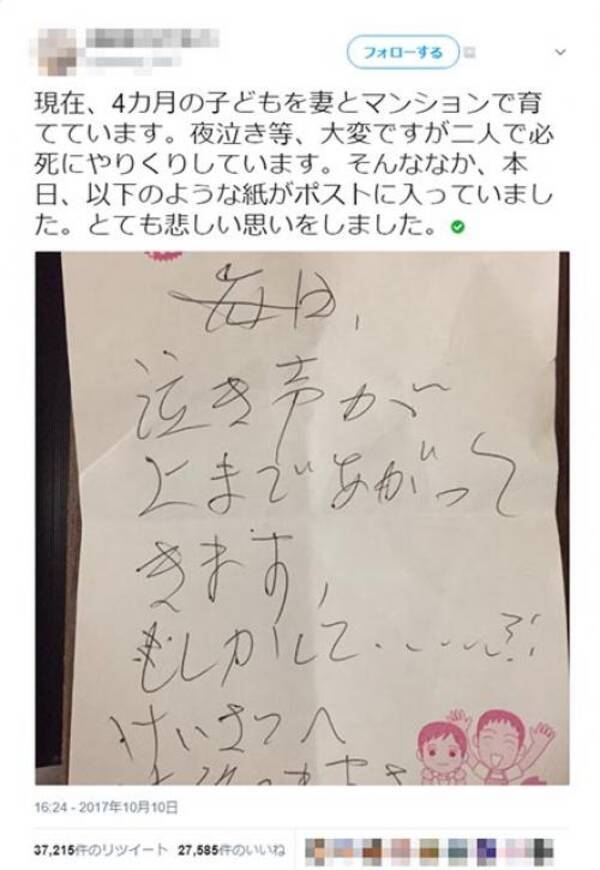 フォローする
現在、4カ月の子どもを妻とマンションで育
てています。夜泣き等、大変ですが二人で必
死にやりくりしています。そんななか、本
日、以下のような紙がポストに入っていまし
た。とても悲しい思いをしました。
毎日、
泣き声が
上まであがって
きます、
もしかして・・・・・
けいさつへ
16:24 - 2017年10月10日
37,215件のリツイート 27,585件のいいね